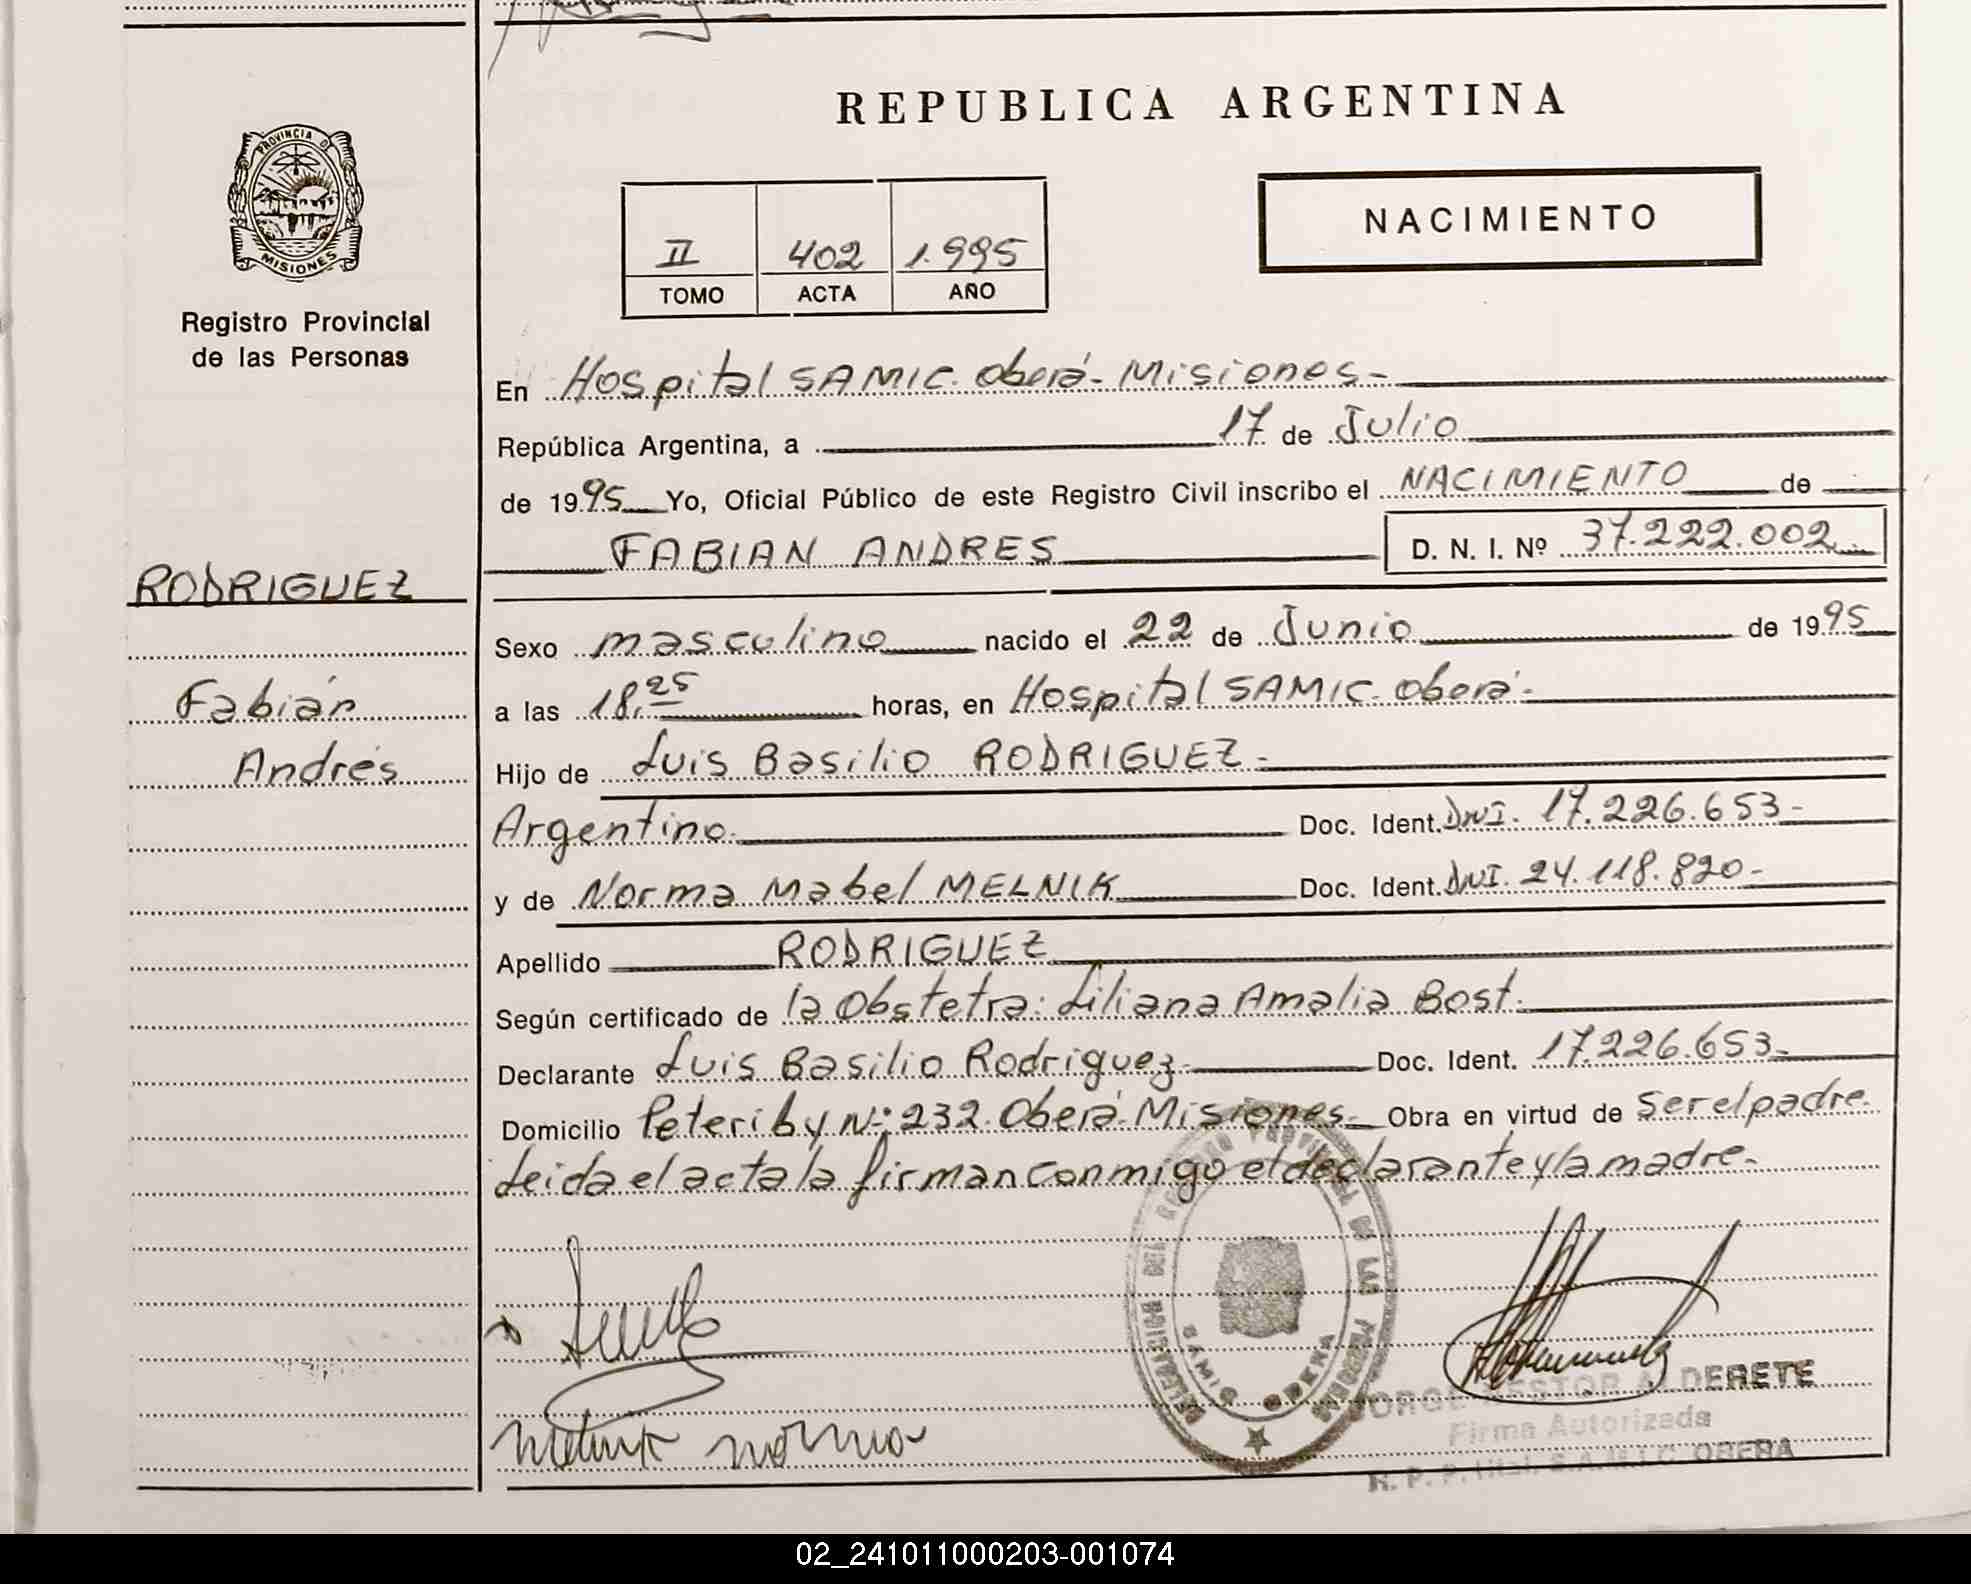 REPUBLICA ARGENTINA
PROVINCIA DE
MISIONES
Registro Provincial
de las Personas
II 402 1.995
TOMO ACTA AÑO
NACIMIENTO
En Hospital SAMIC. Oberá - Misiones -
República Argentina, a 17 de Julio
de 1995 Yo, Oficial Público de este Registro Civil inscribo el NACIMIENTO de
FABIAN ANDRES D. N. I. Nº 37.222.002
RODRIGUEZ
Fabián
Andrés
Sexo masculino nacido el 22 de Junio de 1995
a las 18,25 horas, en Hospital SAMIC. Oberá -
Hijo de Luis Basilio RODRIGUEZ -
Argentino. Doc. Ident. DNI. 17.226.653 -
y de Norma Mabel MELNIK Doc. Ident. DNI. 24.118.820 -
Apellido RODRIGUEZ
Según certificado de la Obstetra: Liliana Amalia Bost.
Declarante Luis Basilio Rodriguez Doc. Ident. 17.226.653 -
Domicilio Peteriby Nº 232. Oberá - Misiones - Obra en virtud de ser el padre.
Leida el acta la firman conmigo el declarante y la madre -
DELEGACION DEL REGISTRO PROVINCIAL DE LAS PERSONAS
SAMIC OBERA
Melnik Norma
JORGE NESTOR ALDERETE
Firma Autorizada
R. P. P. Htal. S.A.M.I.C. OBERA
02_241011000203-001074